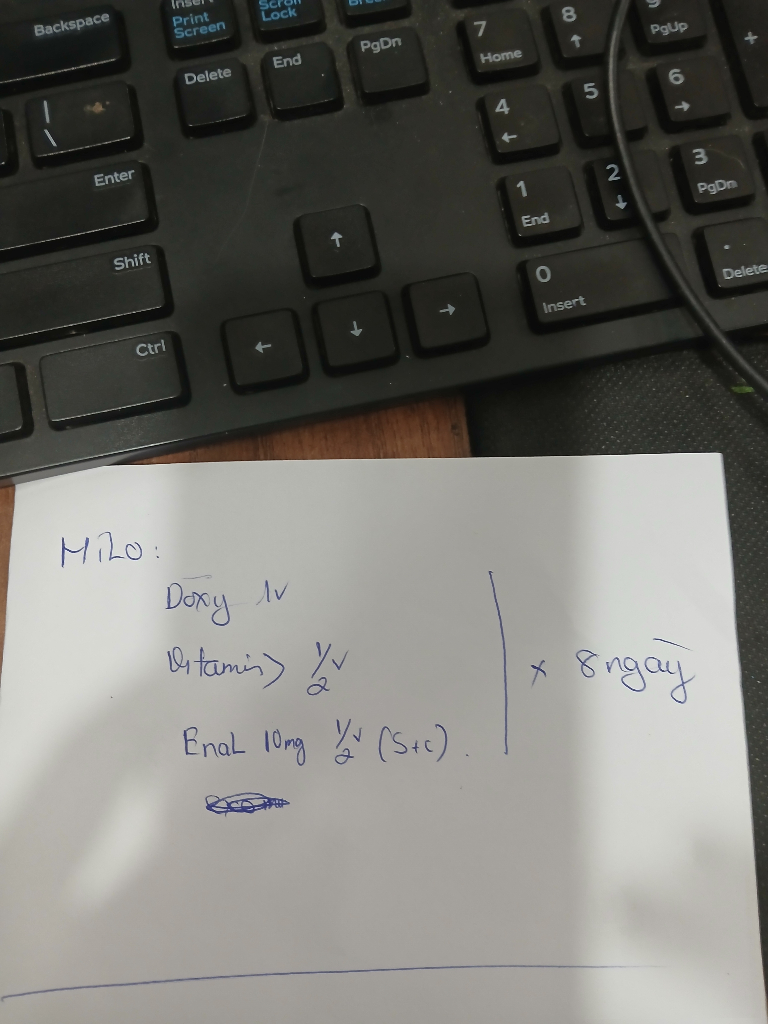 Backspace
Insert
Print
Screen
Scroll
Lock
Delete
End
PgDn
7
Home
8
↑
9
PgUp
+
|
\
4
←
5
6
→
Enter
1
End
2
↓
3
PgDn
Shift
↑
0
Insert
.
Delete
Ctrl
←
↓
→
MiLo:
Doxy 1v
Vitamin 1/2v
Enal 10mg 1/2v (S+c).
x 8 ngày